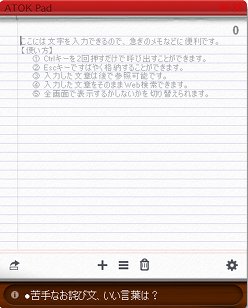 ATOK Pad
0
ここには文字を入力できるので、急ぎのメモなどに便利です。
【使い方】
① Ctrlキーを2回押すだけで呼び出すことができます。
② Escキーですばやく格納することができます。
③ 入力した文章は後で参照可能です。
④ 入力した文章をそのままWeb検索できます。
⑤ 全画面で表示するかしないかを切り替えられます。
●苦手なお詫び文、いい言葉は？